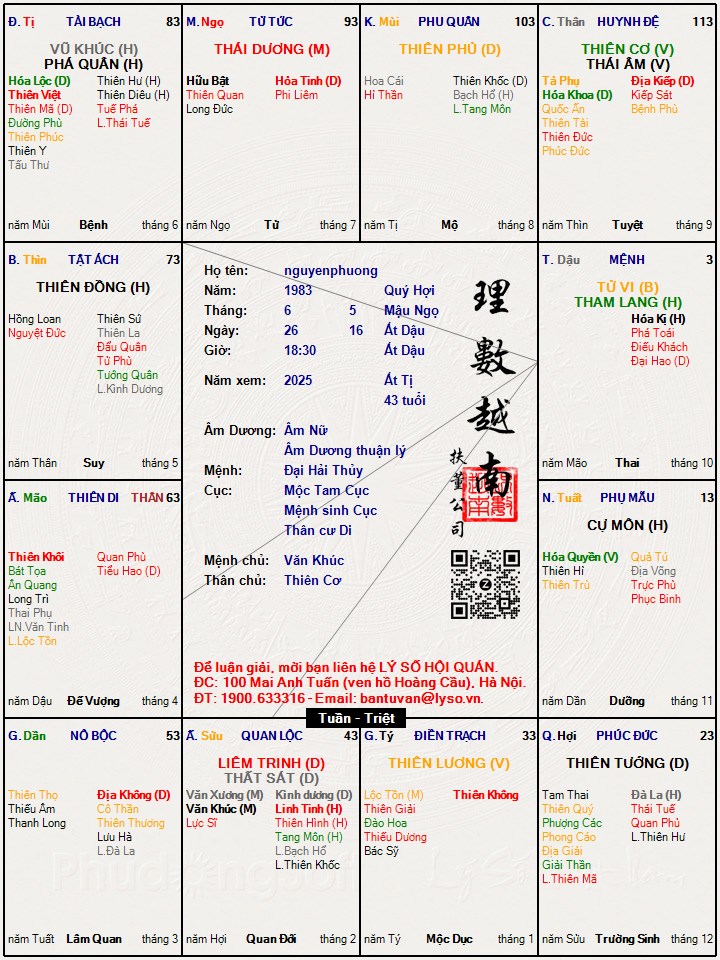 Đ. Tị TÀI BẠCH 83
VŨ KHÚC (H)
PHÁ QUÂN (H)
Hóa Lộc (D) Thiên Hư (H)
Thiên Việt Thiên Diêu (H)
Thiên Mã (D) Tuế Phá
Đường Phù L.Thái Tuế
Thiên Phúc
Thiên Y
Tấu Thư
năm Mùi Bệnh tháng 6
M. Ngọ TỬ TỨC 93
THÁI DƯƠNG (M)
Hữu Bật Hỏa Tinh (D)
Thiên Quan Phi Liêm
Long Đức
năm Ngọ Tử tháng 7
K. Mùi PHU QUÂN 103
THIÊN PHỦ (D)
Hoa Cái Thiên Khốc (D)
Hỉ Thần Bạch Hổ (H)
L.Tang Môn
năm Tị Mộ tháng 8
C. Thân HUYNH ĐỆ 113
THIÊN CƠ (V)
THÁI ÂM (V)
Tả Phụ Địa Kiếp (D)
Hóa Khoa (D) Kiếp Sát
Quốc Ấn Bệnh Phù
Thiên Tài
Thiên Đức
Phúc Đức
năm Thìn Tuyệt tháng 9
B. Thìn TẬT ÁCH 73
THIÊN ĐỒNG (H)
Hồng Loan Thiên Sứ
Nguyệt Đức Thiên La
Đẩu Quân
Tử Phù
Tướng Quân
L.Kình Dương
năm Thân Suy tháng 5
Họ tên: nguyenphuong
Năm: 1983 Quý Hợi
Tháng: 6 5 Mậu Ngọ
Ngày: 26 16 Ất Dậu
Giờ: 18:30 Ất Dậu
Năm xem: 2025 Ất Tị
43 tuổi
Âm Dương: Âm Nữ
Âm Dương thuận lý
Mệnh: Đại Hải Thủy
Cục: Mộc Tam Cục
Mệnh sinh Cục
Thân cư Di
Mệnh chủ: Văn Khúc
Thân chủ: Thiên Cơ
理數越南
扶董公司
Để luận giải, mời bạn liên hệ LÝ SỐ HỘI QUÁN.
ĐC: 100 Mai Anh Tuấn (ven hồ Hoàng Cầu), Hà Nội.
ĐT: 1900.633316 - Email: bantuvan@lyso.vn.
Tuần - Triệt
T. Dậu MỆNH 3
TỬ VI (B)
THAM LANG (H)
Hóa Kị (H)
Phá Toái
Điếu Khách
Đại Hao (D)
năm Mão Thai tháng 10
Ấ. Mão THIÊN DI THÂN 63
Thiên Khôi Quan Phù
Bát Tọa Tiểu Hao (D)
Ân Quang
Long Trì
Thai Phụ
LN.Văn Tinh
L.Lộc Tồn
năm Dậu Đế Vượng tháng 4
N. Tuất PHỤ MẪU 13
CỰ MÔN (H)
Hóa Quyền (V) Quả Tú
Thiên Hỉ Địa Võng
Thiên Trù Trực Phù
Phục Binh
năm Dần Dưỡng tháng 11
G. Dần NÔ BỘC 53
Thiên Thọ Địa Không (D)
Thiếu Âm Cô Thần
Thanh Long Thiên Thương
Lưu Hà
L.Đà La
năm Tuất Lâm Quan tháng 3
Ấ. Sửu QUAN LỘC 43
LIÊM TRINH (D)
THẤT SÁT (D)
Văn Xương (M) Kình dương (D)
Văn Khúc (M) Linh Tinh (H)
Lực Sĩ Thiên Hình (H)
Tang Môn (H)
L.Bạch Hổ
L.Thiên Khốc
năm Hợi Quan Đới tháng 2
G. Tý ĐIỀN TRẠCH 33
THIÊN LƯƠNG (V)
Lộc Tồn (M) Thiên Không
Thiên Giải
Đào Hoa
Thiếu Dương
Bác Sỹ
năm Tý Mộc Dục tháng 1
Q. Hợi PHÚC ĐỨC 23
THIÊN TƯỚNG (D)
Tam Thai Đà La (H)
Thiên Quý Thái Tuế
Phượng Các Quan Phủ
Phong Cáo L.Thiên Hư
Địa Giải
Giải Thần
L.Thiên Mã
năm Sửu Trường Sinh tháng 12